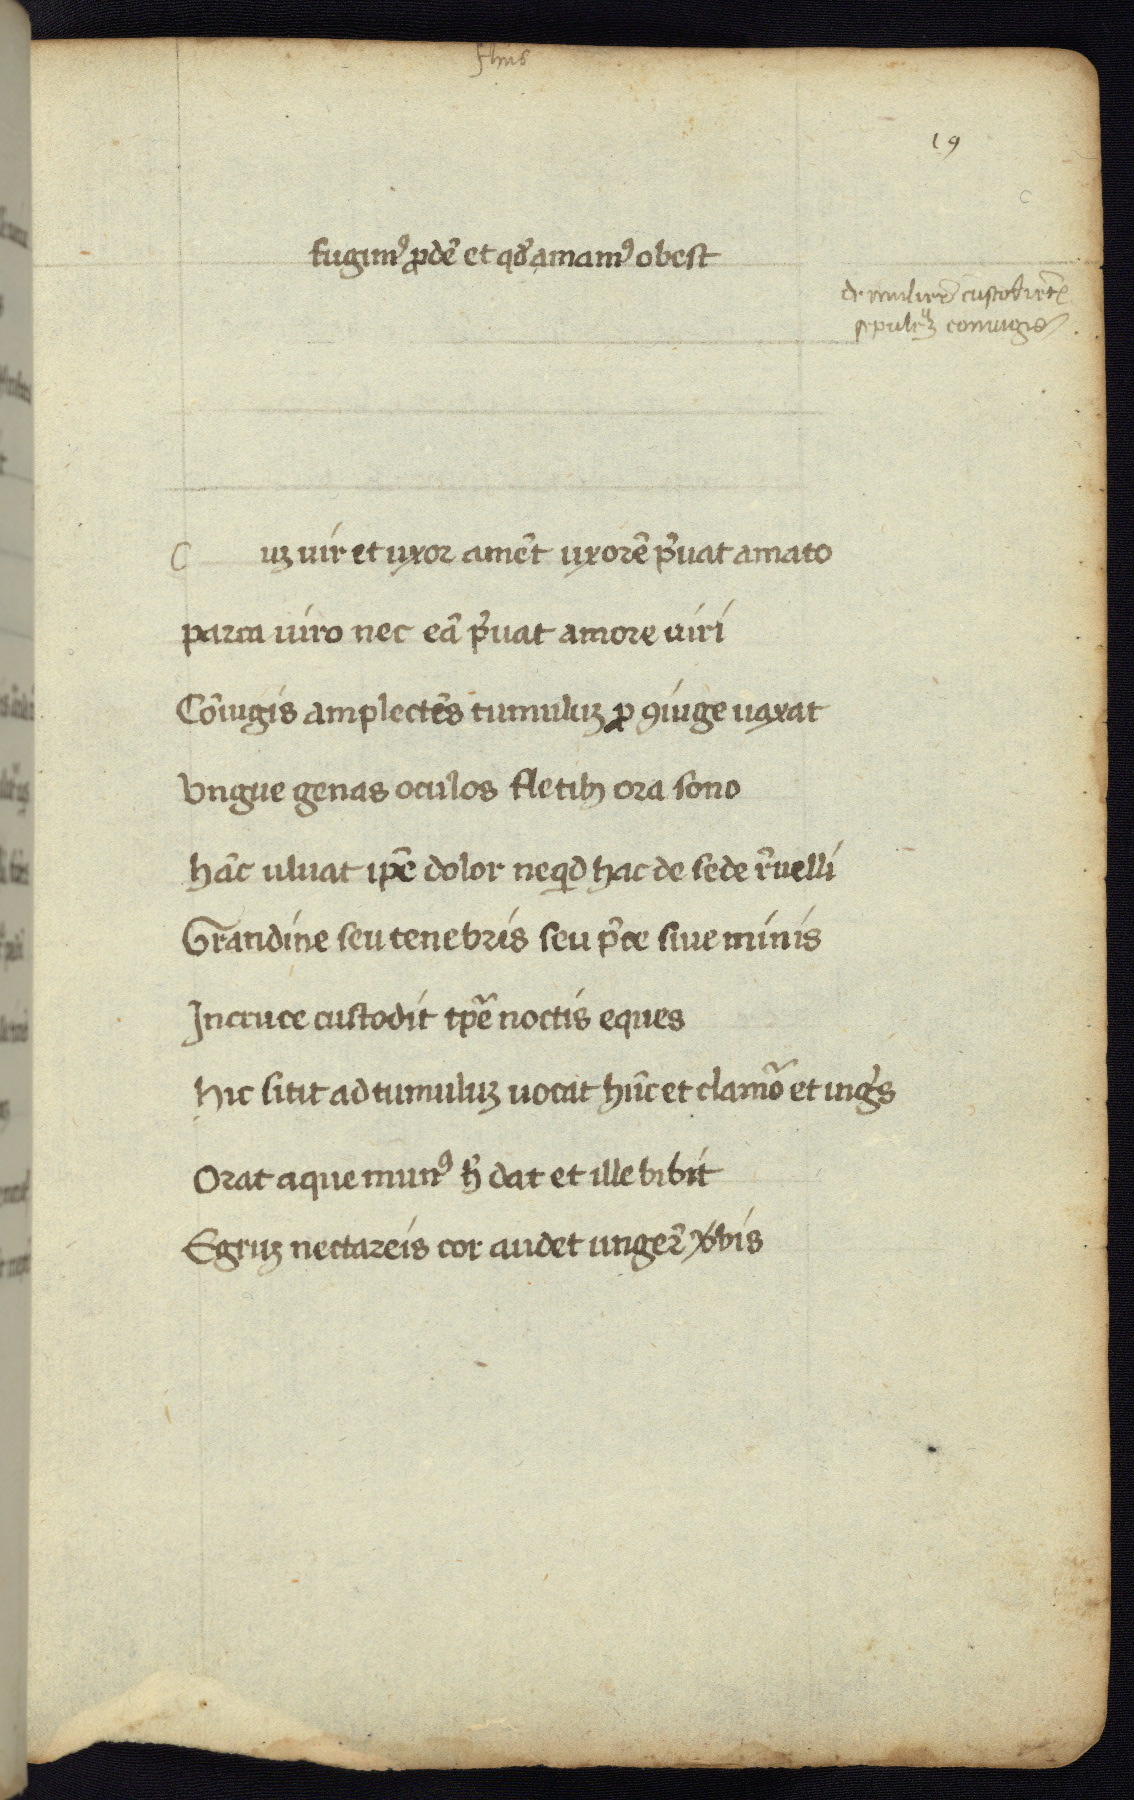 19
fugimꝰ ꝓdē et qđ amamꝰ obest
de muliere custodiēte
sepulcrū coniugis
C uꝫ uir et uxor amēt uxorē p̃uat amato
parca uiro nec eā p̃uat amore uiri
Cōiugis amplectēs tumuluꝫ ꝓ ꝯiuge uaxat
Vngue genas oculos fletibꝫ ora sono
hāc uluat ip̄e dolor neqͥd hac de sede r̃uelli
Grandine seu tenebris seu p̃ce siue minis
In cruce custodit tp̄e noctis eques
hic sitit ad tumuluꝫ uocat hūc et clamō et īgēs
Orat aque munꝰ h̃ dat et ille bibit
Egruꝫ nectareis cor audet unger̃ v̓bis